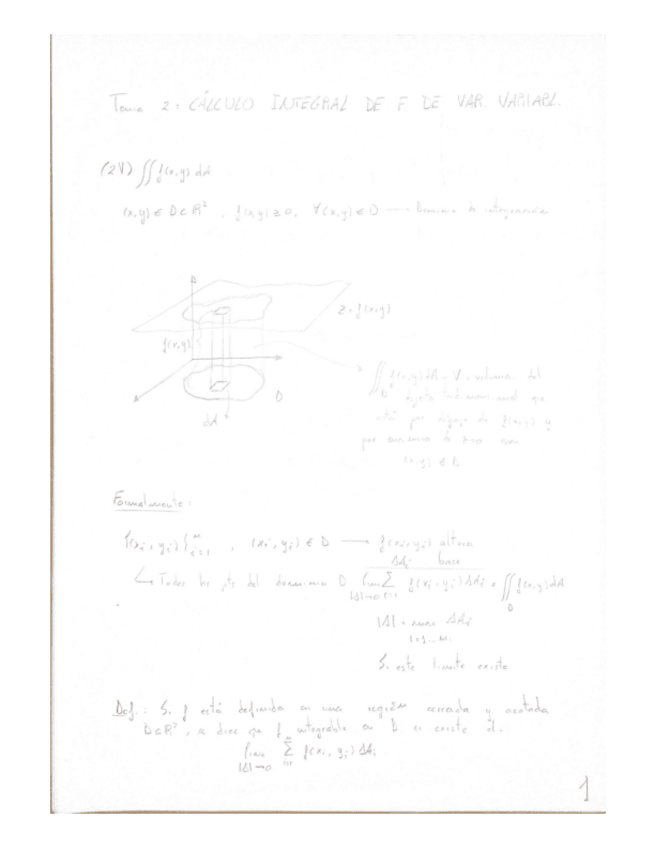 Tema 2: CÁLCULO INTEGRAL DE F. DE VAR. VARIABL.
(2V) ∬ f(x,y) dA
(x,y) ∈ D ⊂ ℝ², f(x,y) ≥ 0, ∀(x,y) ∈ D → Dominio de integración
z = f(x,y)
f(x,y)
D
dA
∬_D f(x,y) dA = V = volumen del
objeto tridimensional que
está por debajo de f(x,y) y
por encima de z=0 con
(x,y) ∈ D
Formalmente:
{(xi, yi)}ⁿᵢ₌₁, (xi, yi) ∈ D → f(xi, yi) altura
ΔAi base
↳ Todos los pts del dominio D
lim_{|Δ|→0} Σ_{i=1}^n f(xi, yi) ΔAi = ∬_D f(x,y) dA
|Δ| = ΔAi
i=1...n
Si este limite existe
Def.: Si f está definida en una región cerrada y acotada
D ⊂ ℝ², se dice que f integrable en D si existe el:
lim_{|Δ|→0} Σ_{i=1}^n f(xi, yi) ΔAi
1